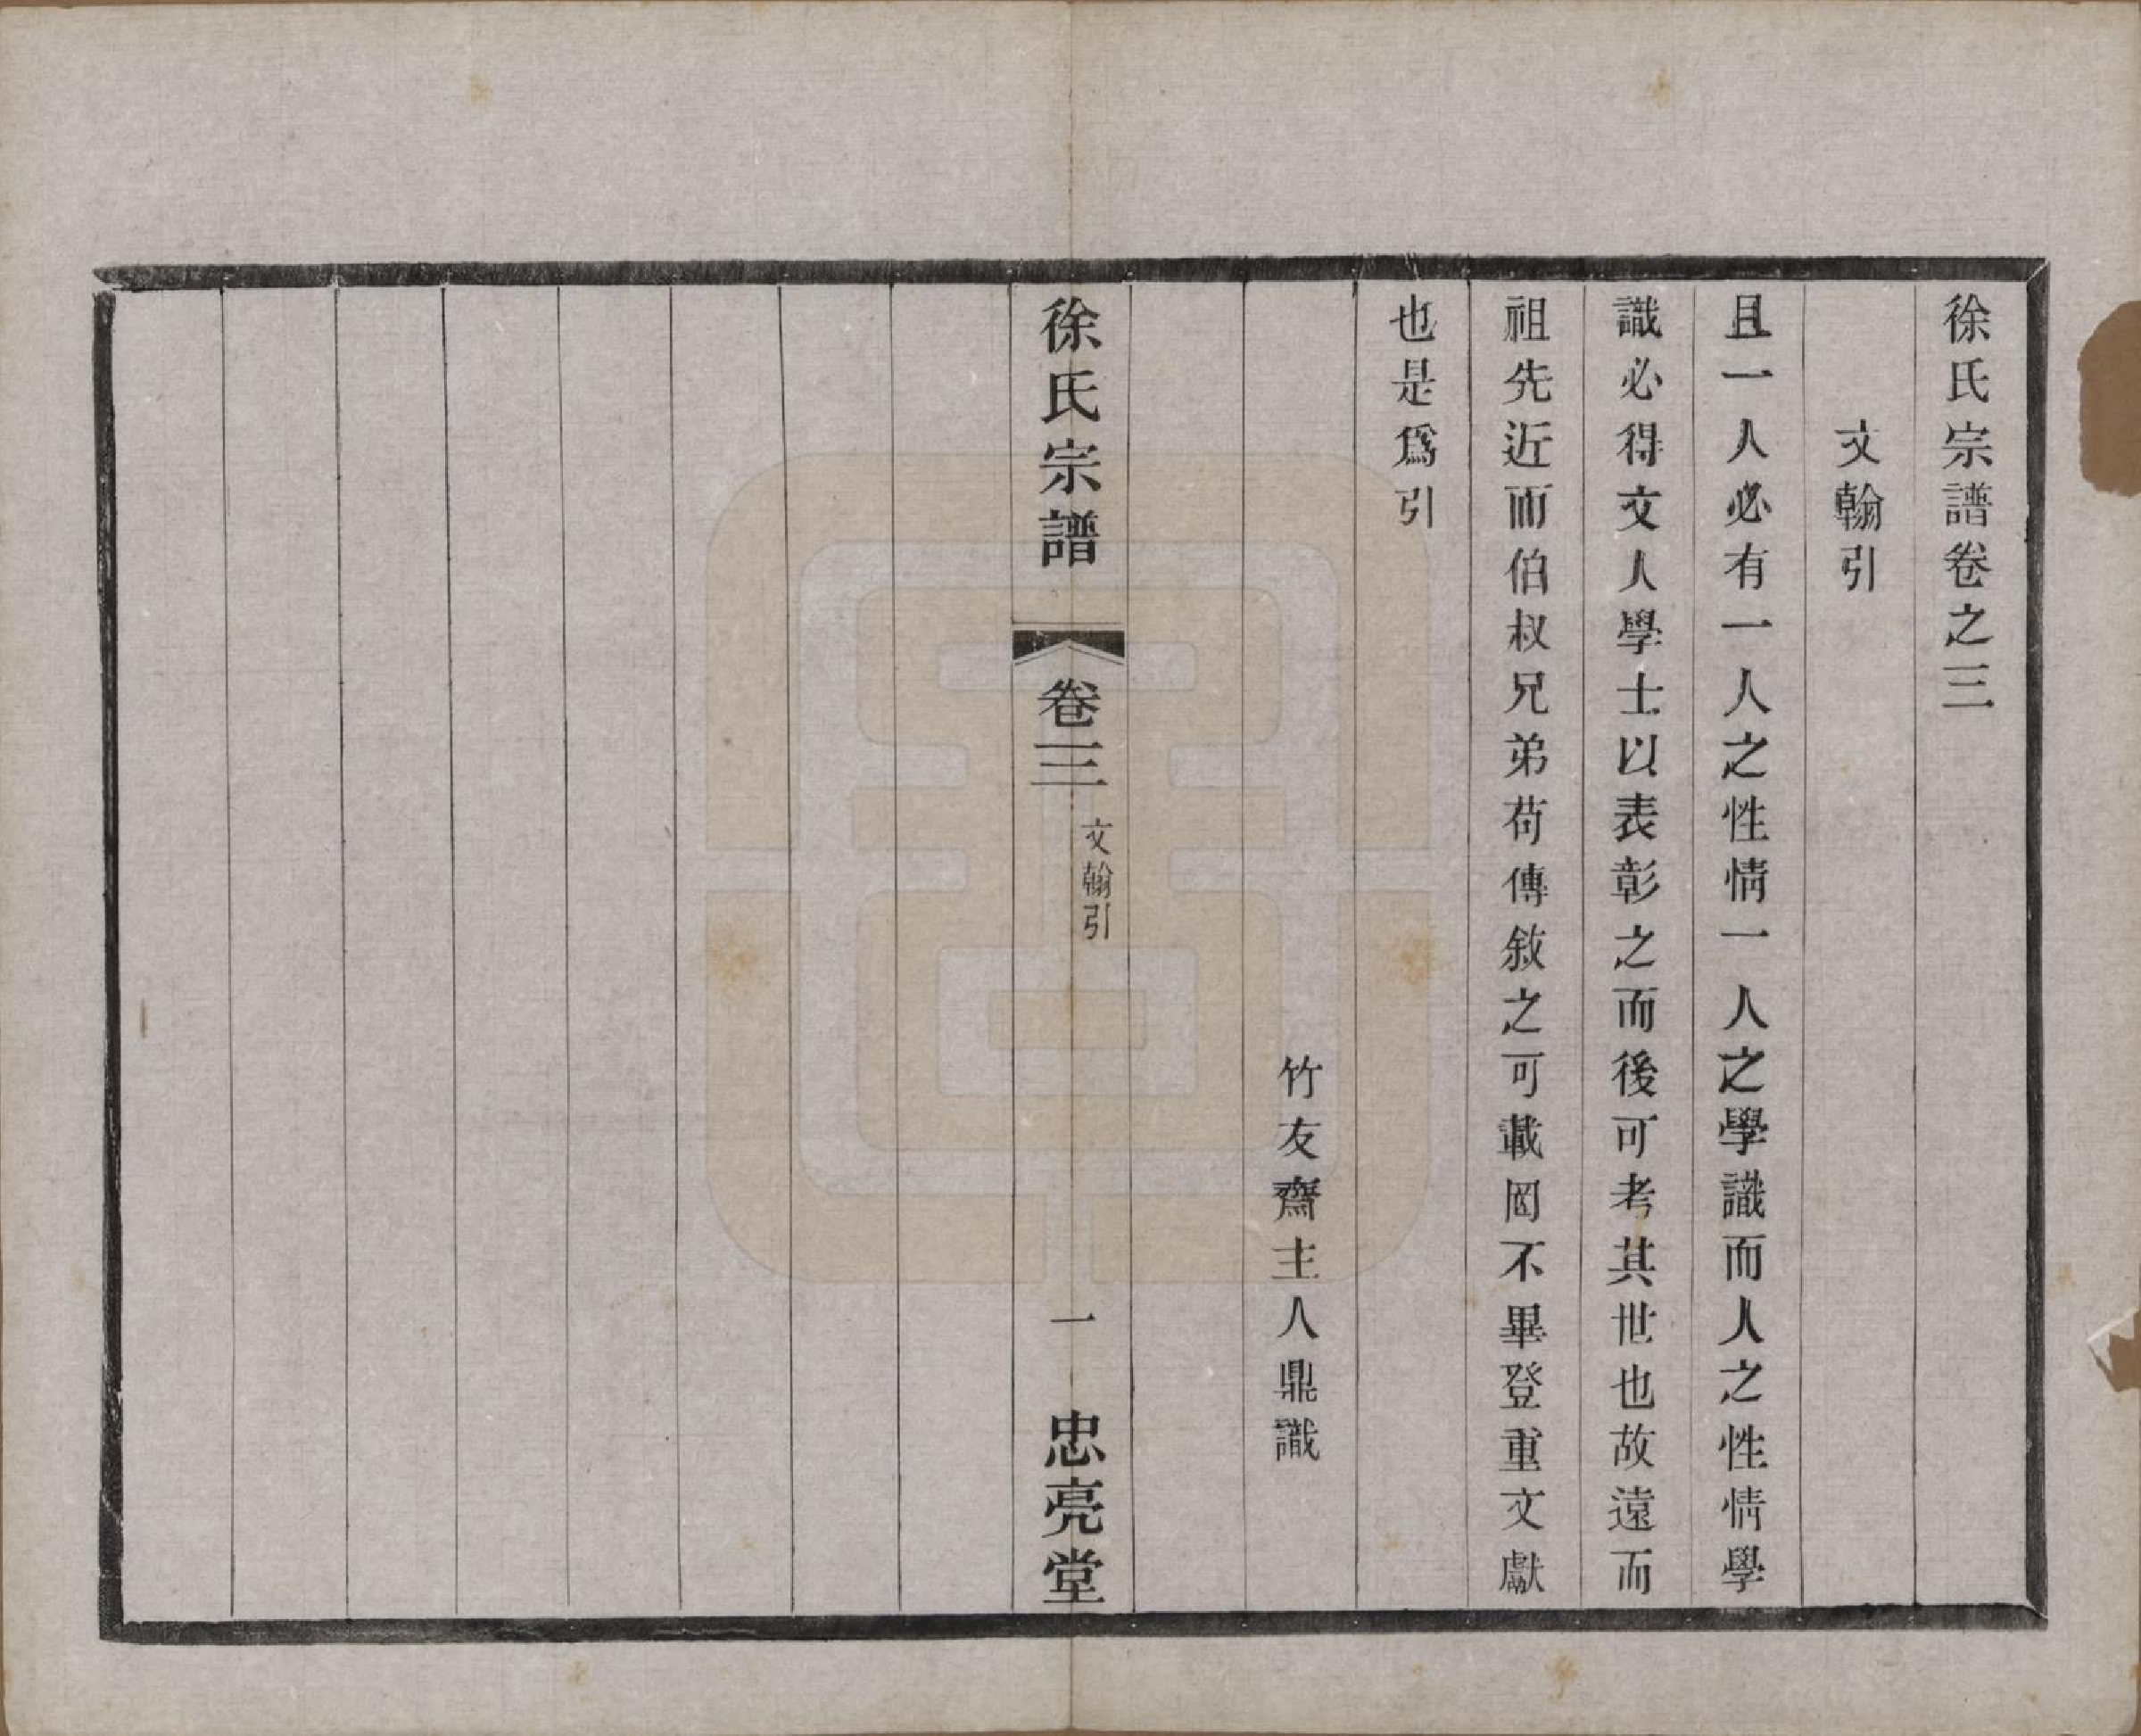 徐氏宗譜卷之三
文翰引
且一人必有一人之性情一人之學識而人之性情學
識必得文人學士以表彰之而後可考其世也故遠而
祖先近而伯叔兄弟苟傳敘之可載罔不畢登重文獻
也是爲引
竹友齋主人鼎識
徐氏宗譜
卷三
文翰引
一
忠亮堂